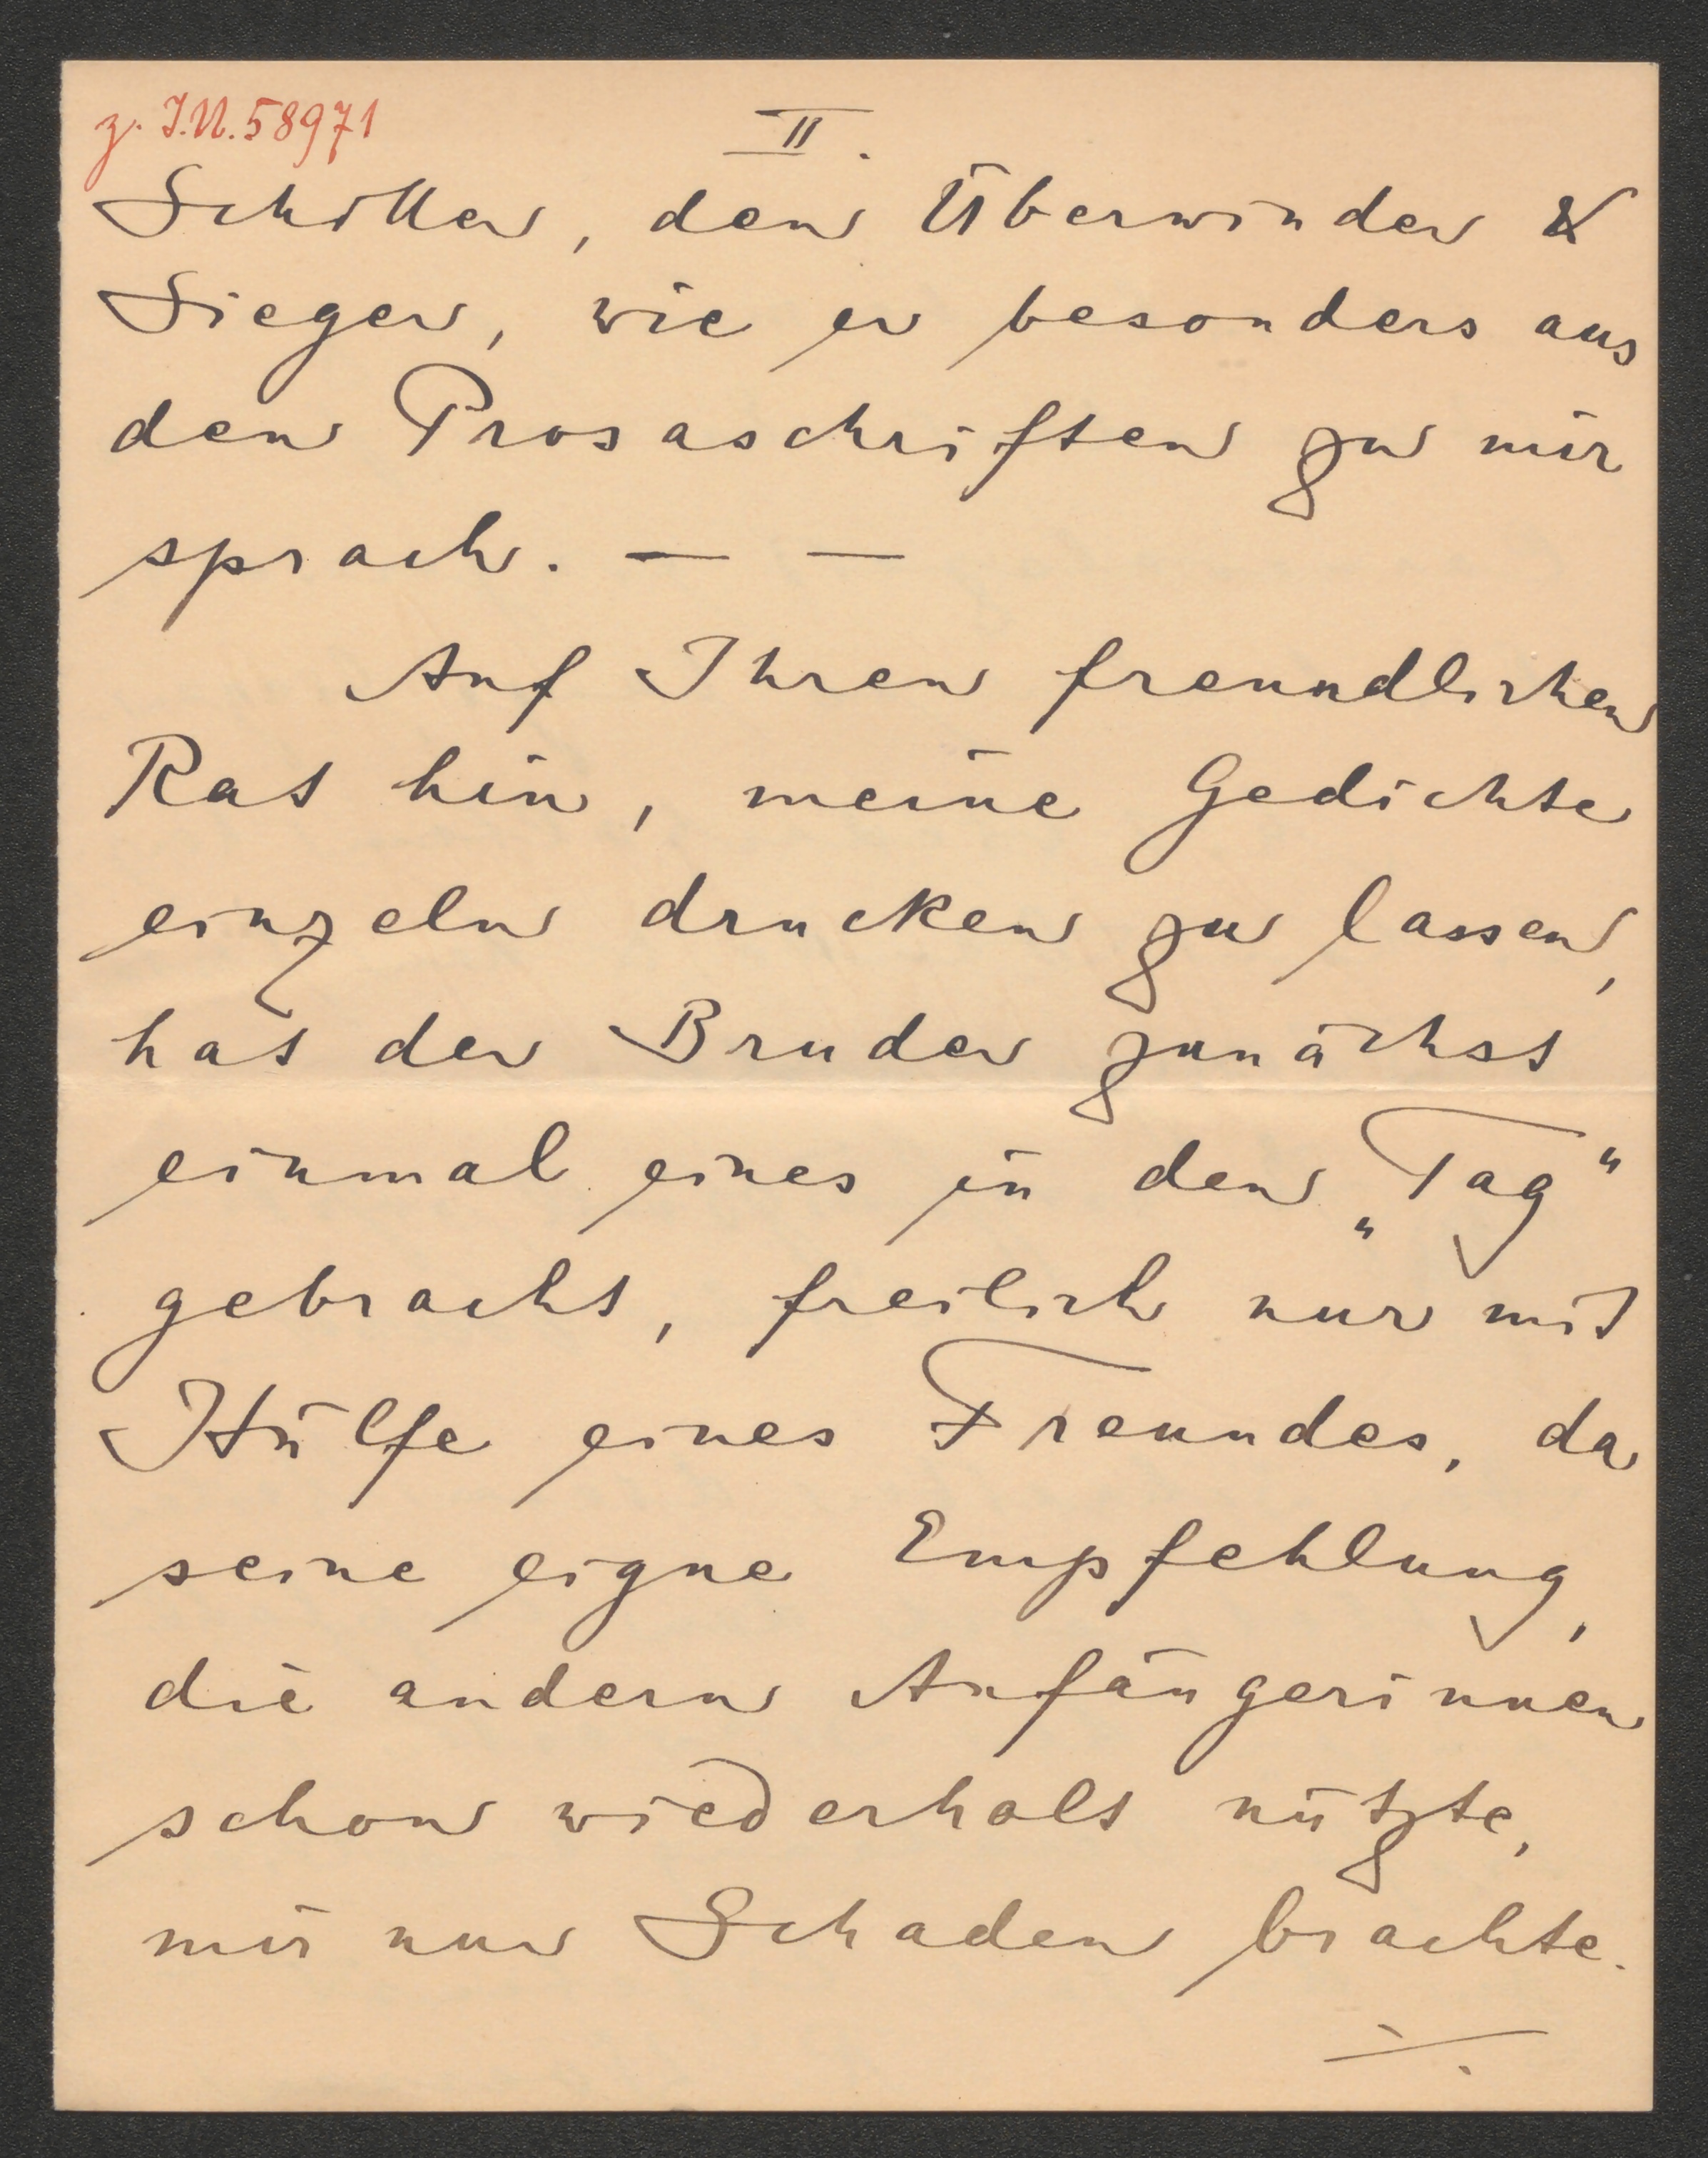 z. I.N. 58971
II.
Schiller, den Überwinder &
Sieger, wie er besonders aus
den Prosaschriften zu mir
sprach. — —
Auf Ihren freundlichen
Rat hin, meine Gedichte
einzeln drucken zu lassen,
hat der Bruder zunächst
einmal eines in den „Tag“
gebracht, freilich nur mit
Hülfe eines Freundes, da
seine eigne Empfehlung,
die andern Anfängerinnen
schon wiederholt nützte,
mir nur Schaden brachte.